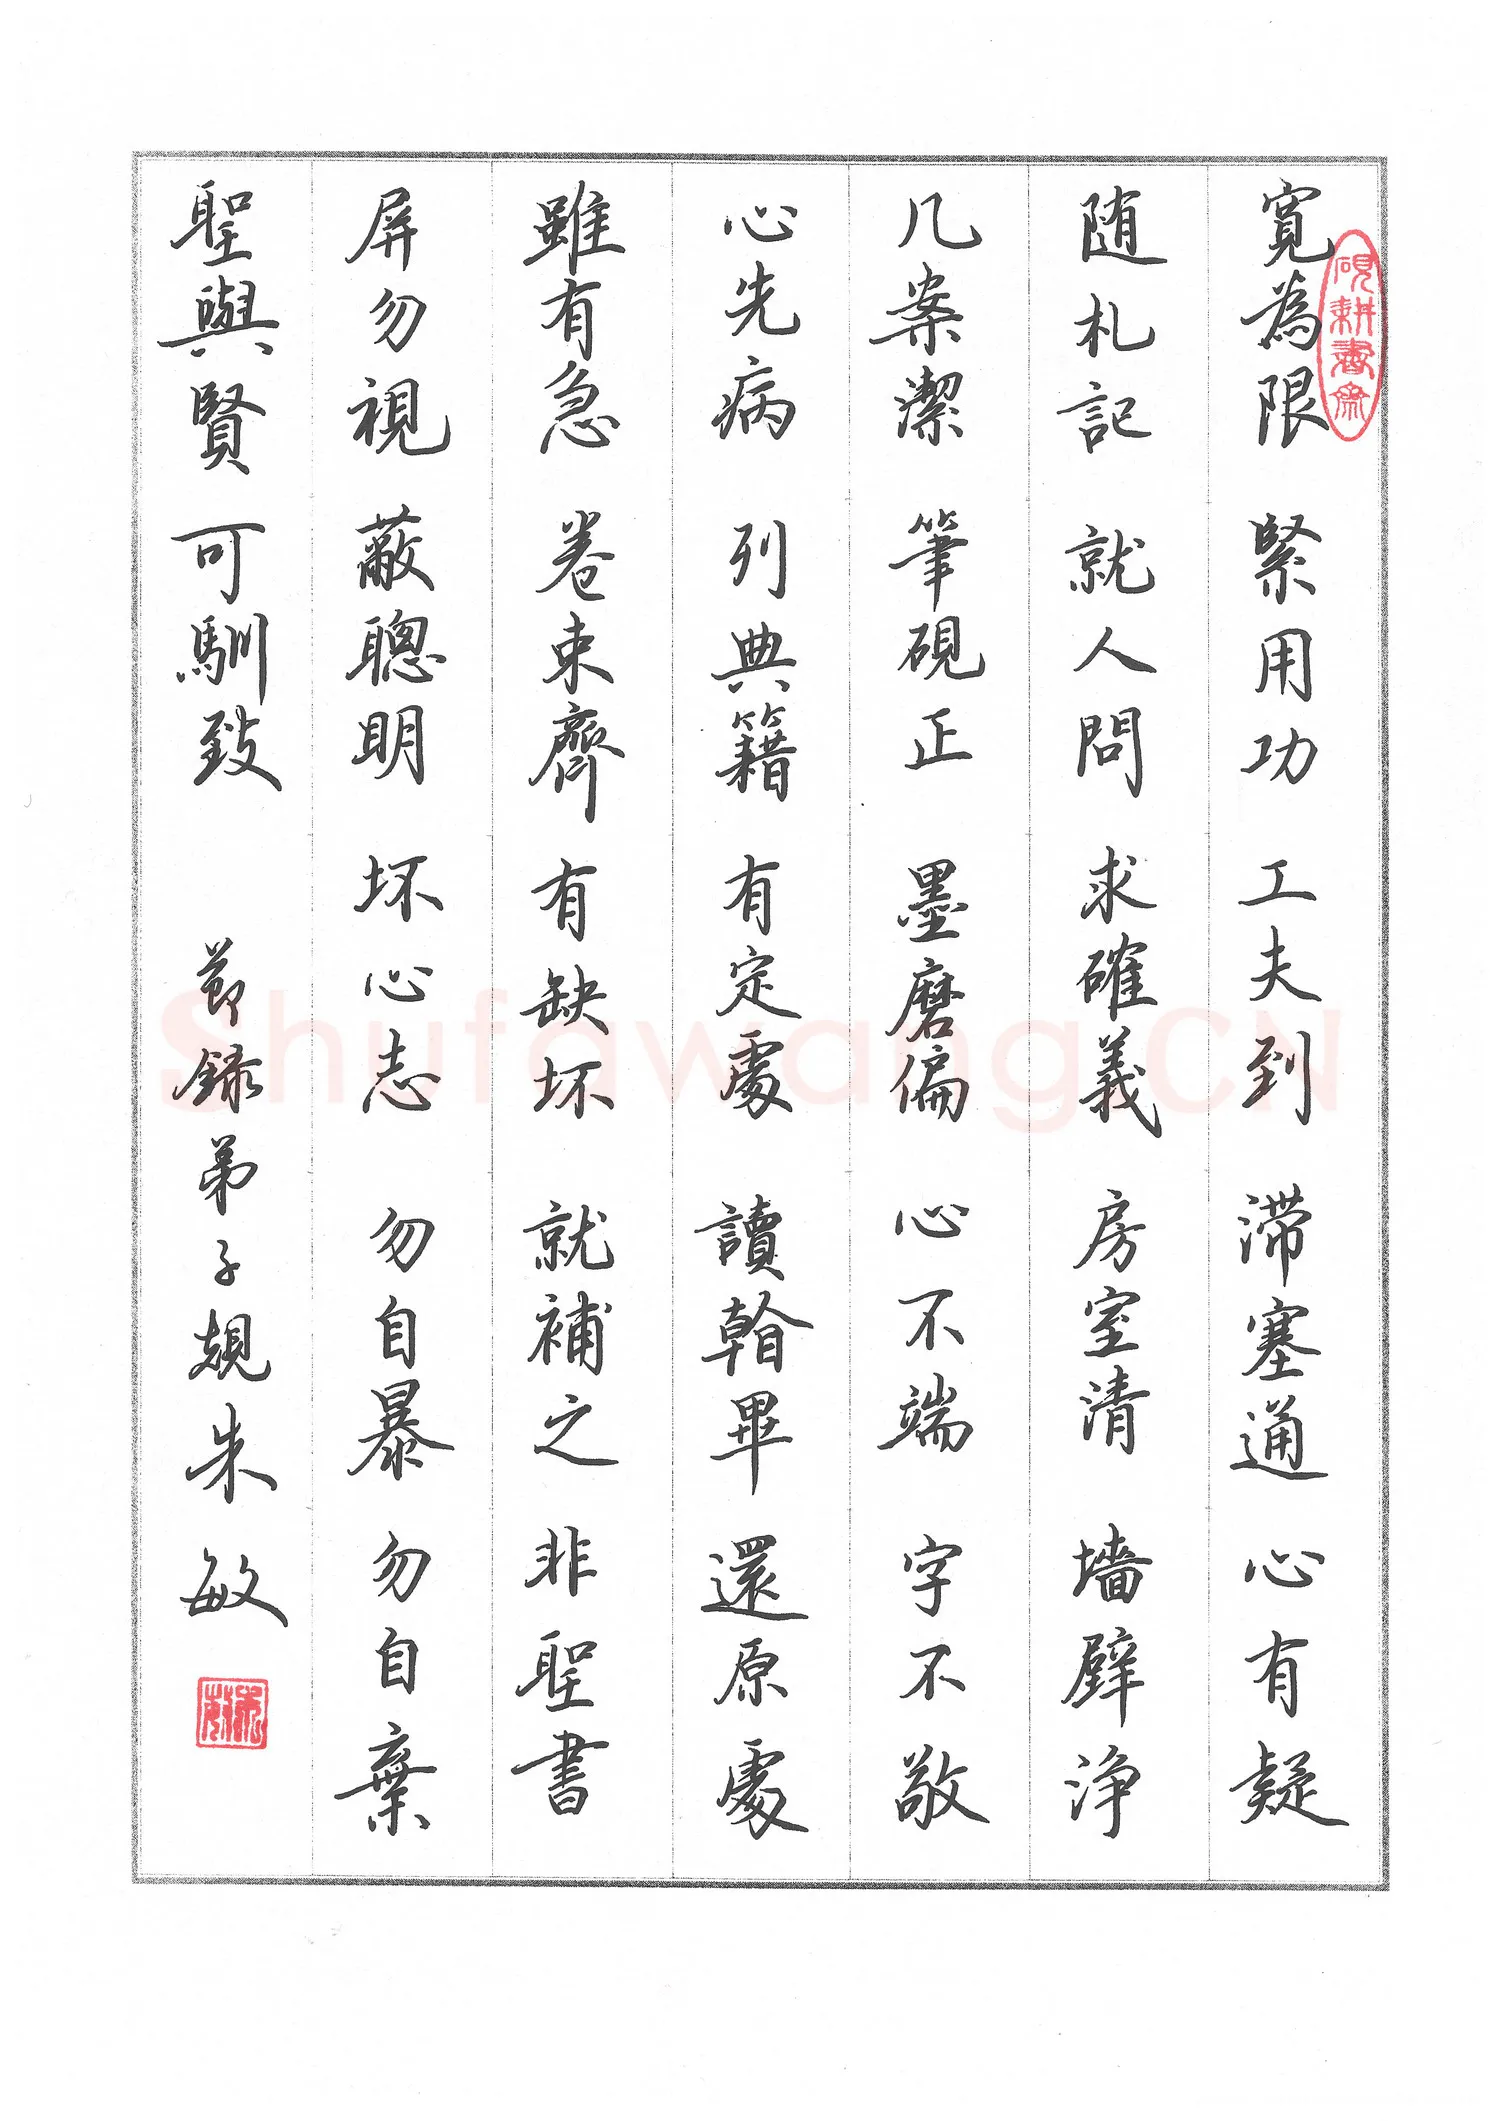 寬為限 緊用功 工夫到 滯塞通 心有疑
随札記 就人問 求確義 房室清 墙壁浄
几案潔 筆硯正 墨磨偏 心不端 字不敬
心先病 列典籍 有定處 讀翰畢 還原處
雖有急 卷束齊 有缺坏 就補之 非聖書
屏勿視 蔽聰明 坏心志 勿自暴 勿自棄
聖與賢 可馴致 節録弟子規朱敏
硯耕書齋
朱敏
Shufawang.CN